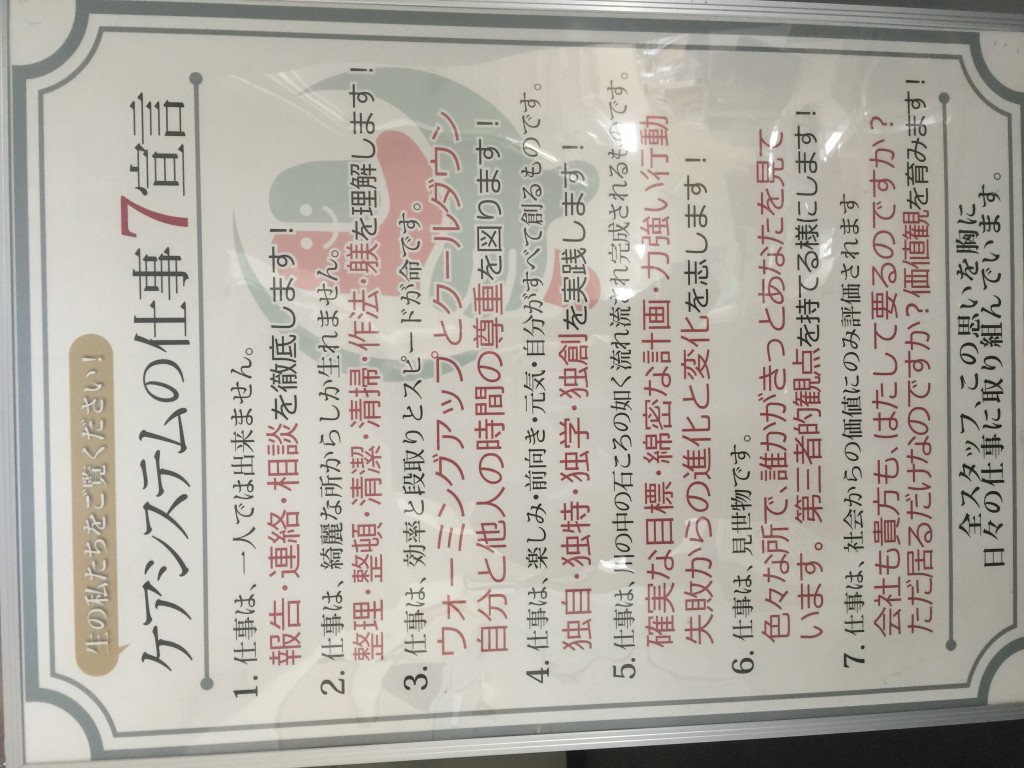 生の私たちをご覧ください！
ケアシステムの仕事7宣言
1. 仕事は、一人では出来ません。
報告・連絡・相談を徹底します！
2. 仕事は、綺麗な所からしか生れません。
整理・整頓・清潔・清掃・作法・躾を理解します！
3. 仕事は、効率と段取りとスピードが命です。
ウォーミングアップとクールダウン
自分と他人の時間の尊重を図ります！
4. 仕事は、楽しみ・前向き・元気・自分がすべて創るものです。
独自・独特・独学・独創を実践します！
5. 仕事は、川の中の石ころの如く流れ流され完成されるものです。
確実な目標・綿密な計画・力強い行動
失敗からの進化と変化を志します！
6. 仕事は、見世物です。
色々な所で、誰かがきっとあなたを見て
います。第三者的観点を持てる様にします！
7. 仕事は、社会からの価値にのみ評価されます
会社も貴方も、はたして要るのですか？
ただ居るだけなのですか？価値観を育みます！
全スタッフ、この思いを胸に
日々の仕事に取り組んでいます。